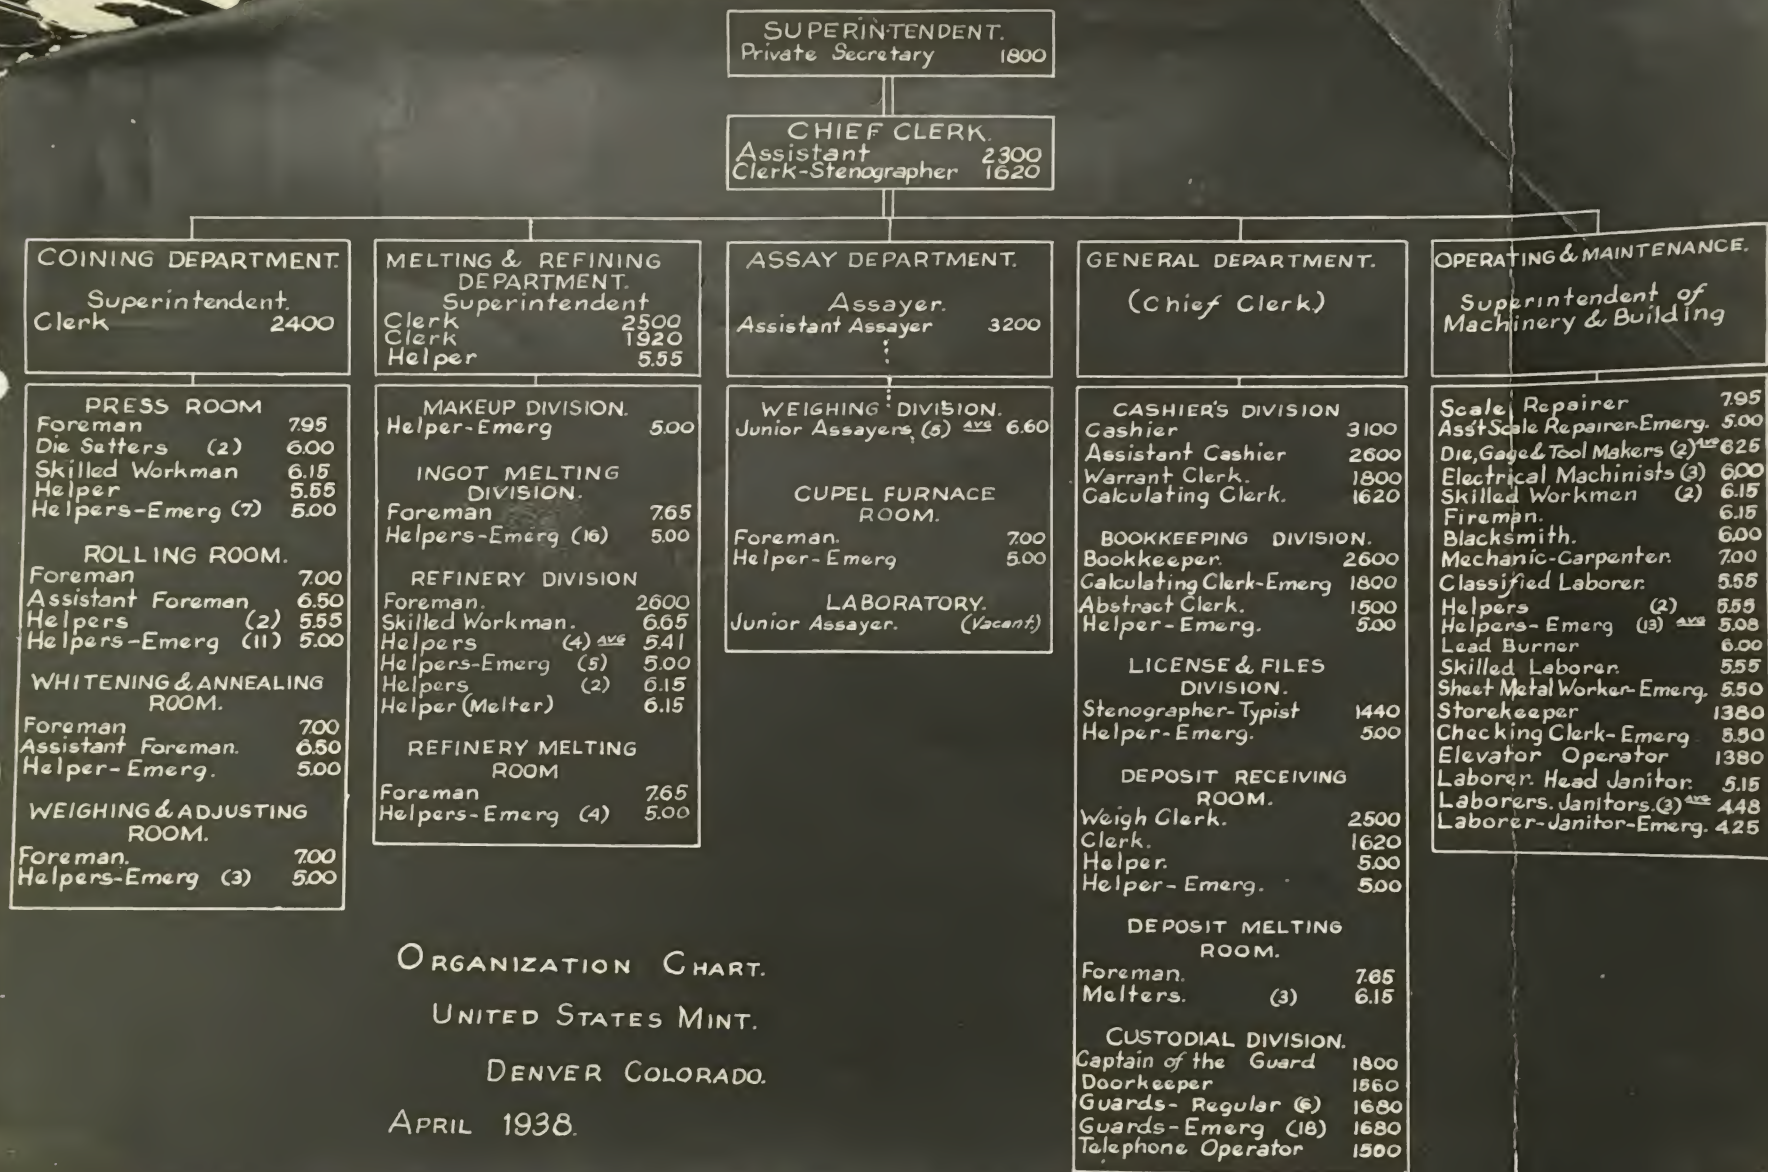 SUPERINTENDENT.
Private Secretary 1800
CHIEF CLERK.
Assistant 2300
Clerk-Stenographer 1620
COINING DEPARTMENT.
Superintendent.
Clerk 2400
PRESS ROOM
Foreman 7.95
Die Setters (2) 6.00
Skilled Workman 6.15
Helper 5.55
Helpers-Emerg (7) 5.00
ROLLING ROOM.
Foreman 7.00
Assistant Foreman 6.50
Helpers (2) 5.55
Helpers-Emerg (11) 5.00
WHITENING & ANNEALING
ROOM.
Foreman 7.00
Assistant Foreman. 6.50
Helper-Emerg. 5.00
WEIGHING & ADJUSTING
ROOM.
Foreman. 7.00
Helpers-Emerg (3) 5.00
MELTING & REFINING
DEPARTMENT.
Superintendent
Clerk 2500
Clerk 1920
Helper 5.55
MAKEUP DIVISION.
Helper-Emerg 5.00
INGOT MELTING
DIVISION.
Foreman 7.65
Helpers-Emerg (16) 5.00
REFINERY DIVISION
Foreman. 2600
Skilled Workman. 6.65
Helpers (4) AVG 5.41
Helpers-Emerg (5) 5.00
Helpers (2) 6.15
Helper (Melter) 6.15
REFINERY MELTING
ROOM
Foreman 7.65
Helpers-Emerg (4) 5.00
ASSAY DEPARTMENT.
Assayer.
Assistant Assayer 3200
WEIGHING DIVISION.
Junior Assayers, (5) AVG 6.60
CUPEL FURNACE
ROOM.
Foreman. 7.00
Helper-Emerg 5.00
LABORATORY.
Junior Assayer. (Vacant)
GENERAL DEPARTMENT.
(Chief Clerk)
CASHIER'S DIVISION
Cashier 3100
Assistant Cashier 2600
Warrant Clerk. 1800
Calculating Clerk. 1620
BOOKKEEPING DIVISION.
Bookkeeper. 2600
Calculating Clerk-Emerg 1800
Abstract Clerk. 1500
Helper-Emerg. 5.00
LICENSE & FILES
DIVISION.
Stenographer-Typist 1440
Helper-Emerg. 5.00
DEPOSIT RECEIVING
ROOM.
Weigh Clerk. 2500
Clerk. 1620
Helper. 5.00
Helper-Emerg. 5.00
DEPOSIT MELTING
ROOM.
Foreman. 7.65
Melters. (3) 6.15
CUSTODIAL DIVISION.
Captain of the Guard 1800
Doorkeeper 1560
Guards-Regular (6) 1680
Guards-Emerg (18) 1680
Telephone Operator 1560
OPERATING & MAINTENANCE.
Superintendent of
Machinery & Building
Scale Repairer 7.95
Ass't Scale Repairer-Emerg. 5.00
Die, Gage & Tool Makers (2) Avg 625
Electrical Machinists (3) 6.00
Skilled Workmen (2) 6.15
Fireman. 6.15
Blacksmith. 6.00
Mechanic-Carpenter. 7.00
Classified Laborer. 5.55
Helpers (2) 5.55
Helpers-Emerg (13) AVG 5.08
Lead Burner 6.00
Skilled Laborer. 5.55
Sheet Metal Worker-Emerg. 5.50
Storekeeper 1380
Checking Clerk-Emerg 5.50
Elevator Operator 1380
Laborer. Head Janitor. 5.15
Laborers. Janitors. (3) AVG 4.48
Laborer-Janitor-Emerg. 4.25
ORGANIZATION CHART.
UNITED STATES MINT.
DENVER COLORADO.
APRIL 1938.